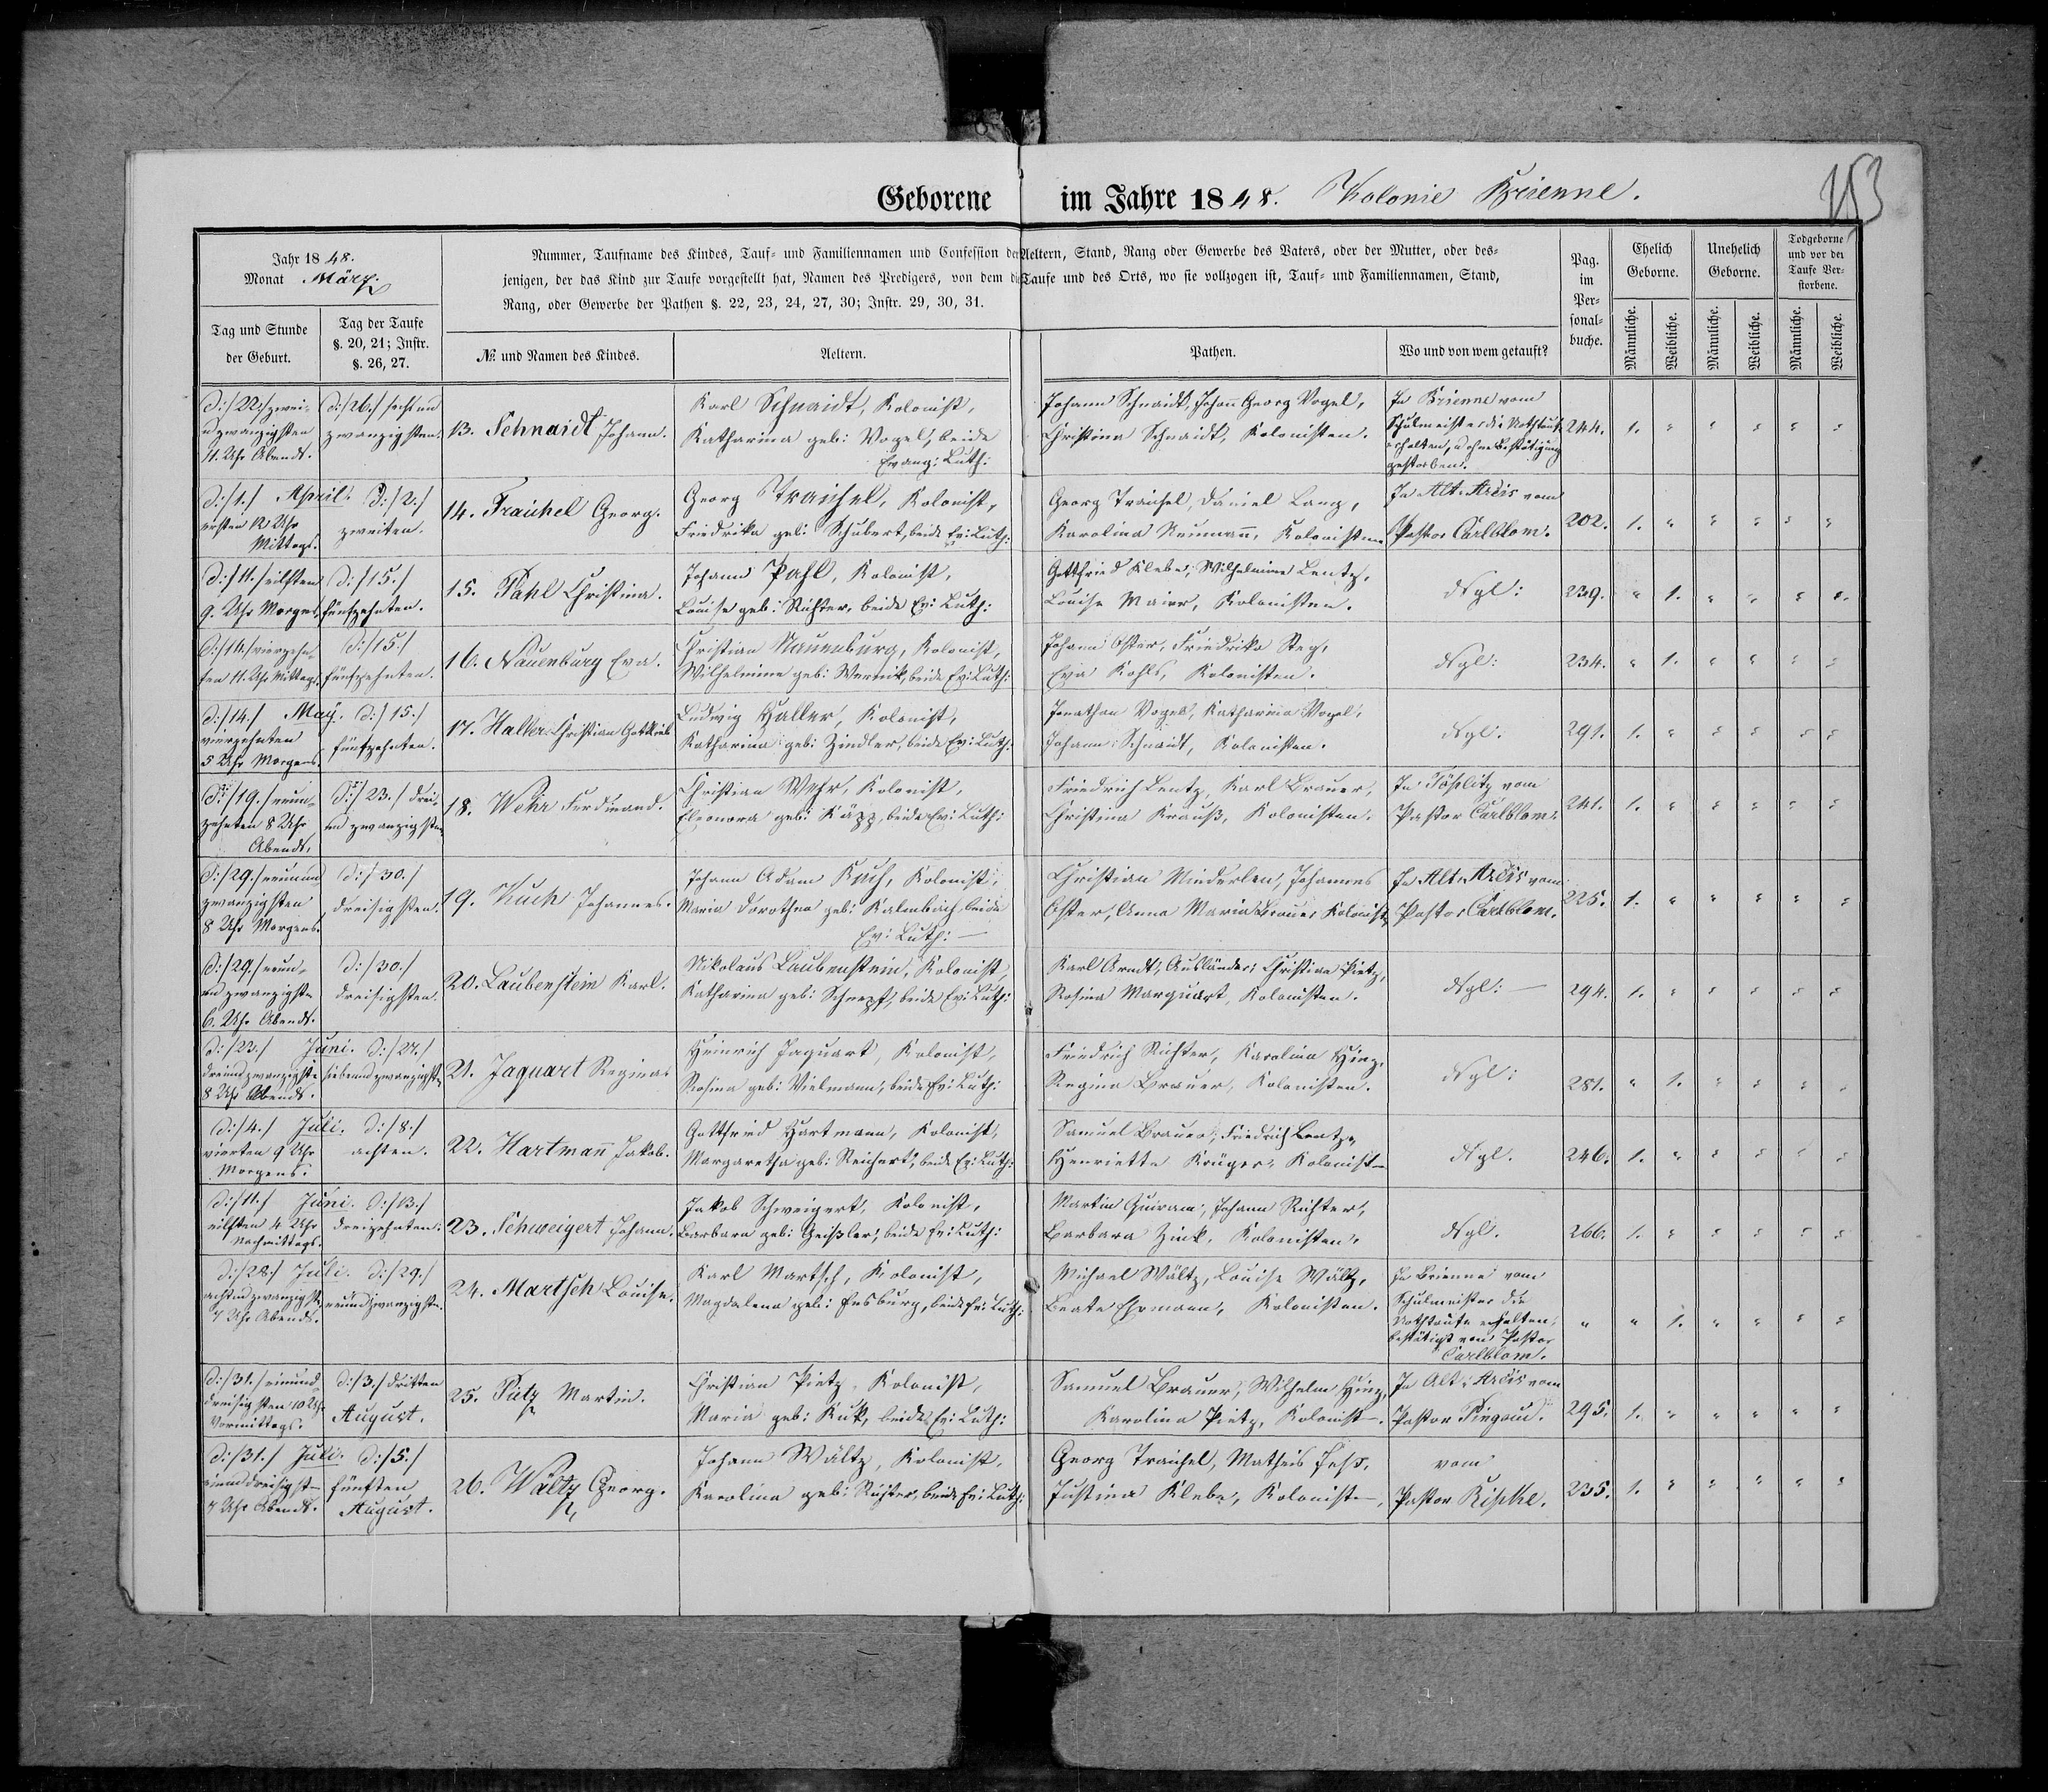 153
Geborene im Jahre 1848. Kolonie Brienne.
Jahr 1848.
Monat März.
Tag und Stunde der Geburt.
Tag der Taufe §. 20, 21; Instr. §. 26, 27.
Nummer, Taufname des Kindes, Tauf- und Familiennamen und Confession der Aeltern, Stand, Rang oder Gewerbe des Vaters, oder der Mutter, oder des-
jenigen, der das Kind zur Taufe vorgestellt hat, Namen des Predigers, von dem die Taufe und des Orts, wo sie vollzogen ist, Tauf- und Familiennamen, Stand,
Rang, oder Gewerbe der Pathen §. 22, 23, 24, 27, 30; Instr. 29, 30, 31.
№ und Namen des Kindes.
Aeltern.
Pathen.
Wo und von wem getauft?
Pag. im Personal-buche.
Ehelich Geborne.
Unehelich Geborne.
Todgeborne und vor der Taufe Verstorbene.
Männliche. Weibliche. Männliche. Weibliche. Männliche. Weibliche.
d:/22./ zwei-
u zwanzigsten
11. Uhr Abends.
d:/26./ sechs un
zwanzigsten.
13. Schnaidt Johann.
Karl Schnaidt, Kolonist,
Katharina geb: Vogel, beide
Evang: Luth:
Johann Schnaidt, Johann Georg Vogel,
Christina Schnaidt, Kolonisten.
In Brienne vom
Schulmeister die Nothtaufe
erhalten, u ohne Bestätigung
gestorben.
244. 1. " " " " "
d:/1./ April.
ersten 12 Uhr
Mittags.
d:/2./
zweiten.
14. Traichel Georg.
Georg Traichel, Kolonist,
Friedrika geb: Schubert, beide Ev: Luth:
Georg Traichel, Daniel Lang,
Karolina Neumann, Kolonisten
In Alt-Arcis vom
Pastor Carlblom.
202. 1. " " " " "
d:/11./ eilften
9. Uhr Morgens.
d:/15./
fünfzehnten.
15. Pahl Christina.
Johann Pahl, Kolonist,
Louise geb: Richter, beide Ev: Luth:
Gottfried Klebe, Wilhelmine Lentz,
Louise Maier, Kolonisten.
dsgl:
239. " 1. " " " "
d:/14./ vierzehn-
ten 11. Uhr Mittags.
d:/15./
fünfzehnten.
16. Nauenburg Eva.
Christian Nauenburg, Kolonist,
Wilhelmine geb: Wernik, beide Ev: Luth:
Johann Oster, Friedrika Steg,
Eva Kohls, Kolonisten.
dsgl:
234. " 1. " " " "
d:/14./ May.
vierzehnten
5 Uhr Morgens.
d:/15./
fünfzehnten.
17. Haller Christian Gottlieb
Ludwig Haller, Kolonist,
Katharina geb: Zindler, beide Ev: Luth:
Jonathan Vogel, Katharina Vogel,
Johann Schnaidt, Kolonisten.
dsgl.
291. 1. " " " " "
d:/19./ neun-
zehnten 8 Uhr
Abends.
d:/23./ drei-
un zwanzigsten
18. Wehr Ferdinand.
Christian Wehr, Kolonist,
Eleonora geb: Käpp, beide Ev: Luth:
Friedrich Lentz, Karl Brauer,
Christina Krauß, Kolonisten.
In Töplitz vom
Pastor Carlblom.
241. 1. " " " " "
d:/29./ neunund
zwanzigsten
8 Uhr Morgens.
d:/30./
dreisigsten.
19. Kuch Johannes.
Johann Adam Kuch, Kolonist,
Maria Dorothea geb: Kalmbach, beide
Ev: Luth:
Christian Niederlen, Johannes
Oster, Anna Maria Brauer Kolonist
In Alt-Arcis vom
Pastor Carlblom.
225. 1. " " " " "
d:/29./ neun-
un zwanzigst-
6. Uhr Abends.
d:/30./
dreisigsten.
20. Laubenstein Karl.
Nikolaus Laubenstein, Kolonist,
Katharina geb: Schnepf, beide Ev: Luth:
Karl Arndt, Ausländer, Christina Pietz,
Rosina Marquart, Kolonisten.
dsgl:
294. 1. " " " " "
d:/23./ Juni.
dreiundzwanzigste
8 Uhr Abends.
d:/27./
siebenundzwanzigste
21. Jaquart Regina
Heinrich Jaquart, Kolonist,
Rosina geb: Vielmann, beide Ev: Luth:
Friedrich Richter, Karolina Hinz,
Regina Brauer, Kolonisten.
dsgl:
281. " 1. " " " "
d:/4./ Juli.
vierten 9 Uhr
Morgens.
d:/8./
achten.
22. Hartmann Jakob.
Gottfried Hartmann, Kolonist,
Margaretha geb: Reichert, beide Ev: Luth:
Samuel Brauer, Friedrich Lentz,
Henriette Krüger, Kolonist-
dsgl.
246. 1. " " " " "
d:/11./ Juni.
eilften 4 Uhr
Nachmittags.
d:/13./
dreizehnten.
23. Schweigert Johann.
Jakob Schweigert, Kolonist,
Barbara geb: Geißler, beide Ev: Luth:
Martin Quiram, Johann Richter,
Barbara Zink, Kolonisten.
dsgl.
266. 1. " " " " "
d:/28./ Juli.
achtundzwanzigst
7 Uhr Abends.
d:/29./
neunundzwanzigste.
24. Martsch Louise.
Karl Martsch, Kolonist,
Magdalena geb: Ensburg, beide Ev: Luth:
Michael Wältz, Louise Wältz,
Beate Ehrmann, Kolonisten.
In Brienne vom
Schulmeister die
Nothtaufe erhalten,
bestätigt von Pastor
Carlblom.
" " 1. " " " "
d:/31./ einund-
dreisigsten 10 Uhr
Vormittags.
d:/3./ dritten
August.
25. Pietz Martin.
Christian Pietz, Kolonist,
Maria geb: Kuk, beide Ev: Luth:
Samuel Brauer, Wilhelm Hinz,
Karolina Pietz, Kolonist-.
In Alt-Arcis vom
Pastor Pingoud.
295. 1. " " " " "
d:/31./ Juli.
einunddreisigst-
7 Uhr Abends.
d:/5./
fünften
August.
26. Wältz Georg.
Johann Wältz, Kolonist,
Karolina geb: Richter, beide Ev: Luth:
Georg Traichel, Matheis Heß,
Justina Klebe, Kolonist-.
vom
Pastor Kipke.
235. 1. " " " " "